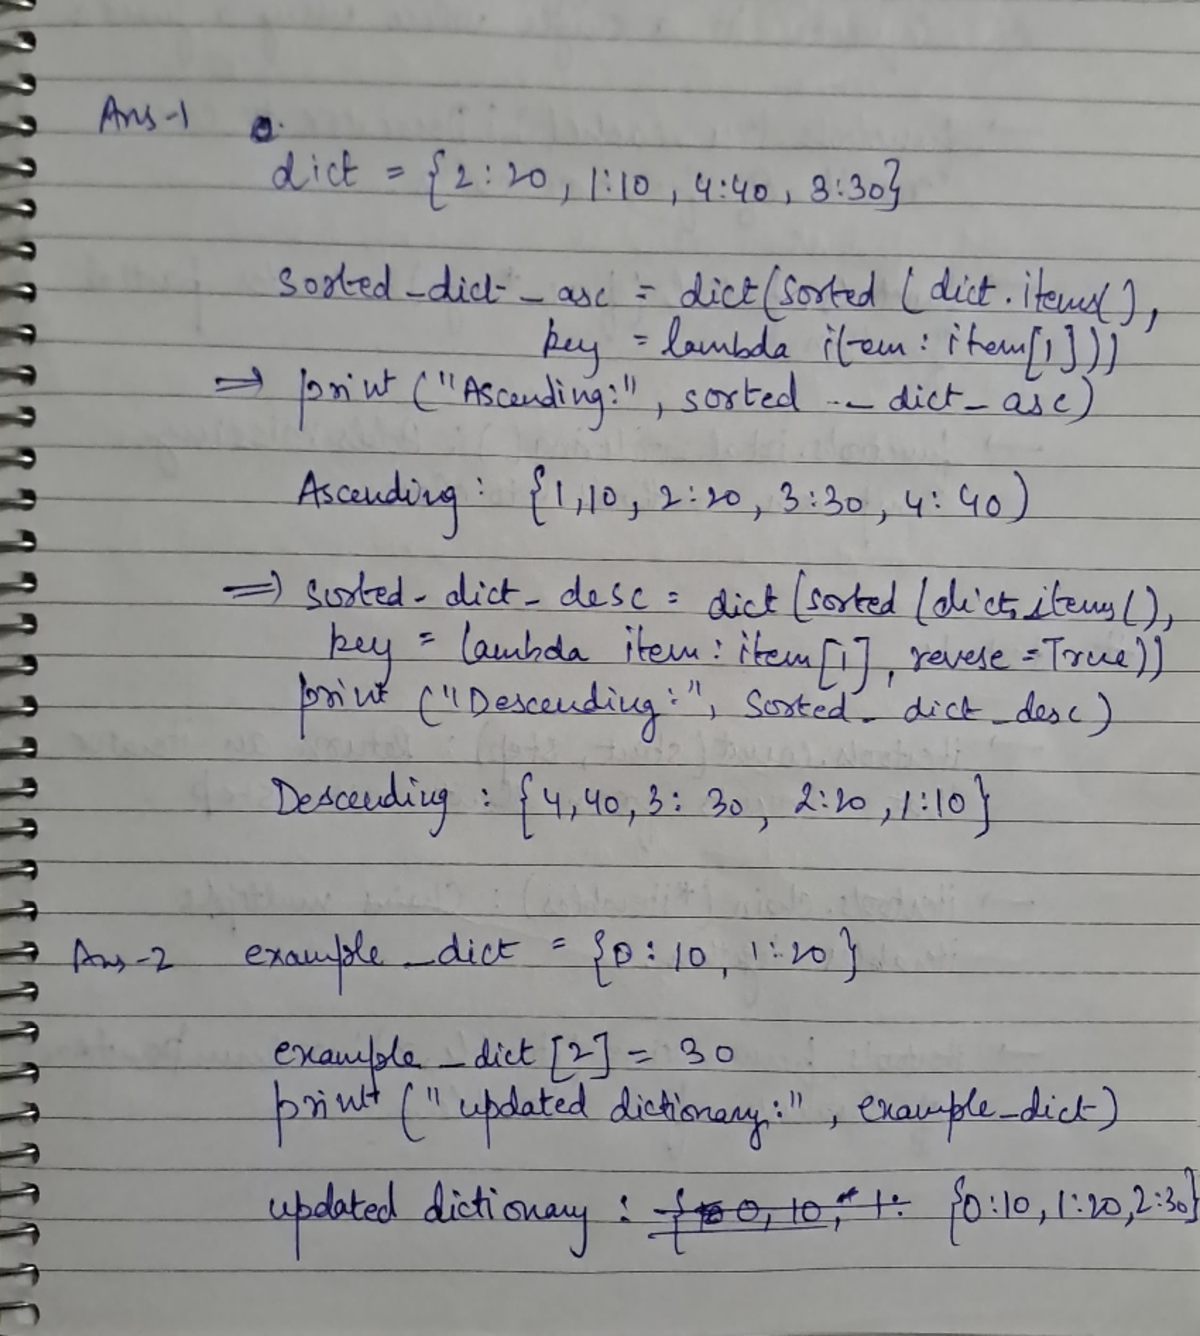 Ans-1
dict = {2:20, 1:10, 4:40, 3:30}
sorted_dict_asc = dict(sorted(dict.items(),
key = lambda item: item[1]))
⇒ print ("Ascending:", sorted _ dict_asc)
Ascending: {1,10, 2:20, 3:30, 4:40)
⇒ sorted_dict_desc = dict(sorted(dict.items(),
key = lambda item: item[1], revese = True))
print ("Descending:", Sorted_dict_desc)
Descending: {4,40, 3:30, 2:20, 1:10}
Ans-2 example_dict = {0:10, 1:20}
example_dict[2] = 30
print ("updated dictionary:", example_dict)
updated dictionary: {0:10, 1:20, 2:30}